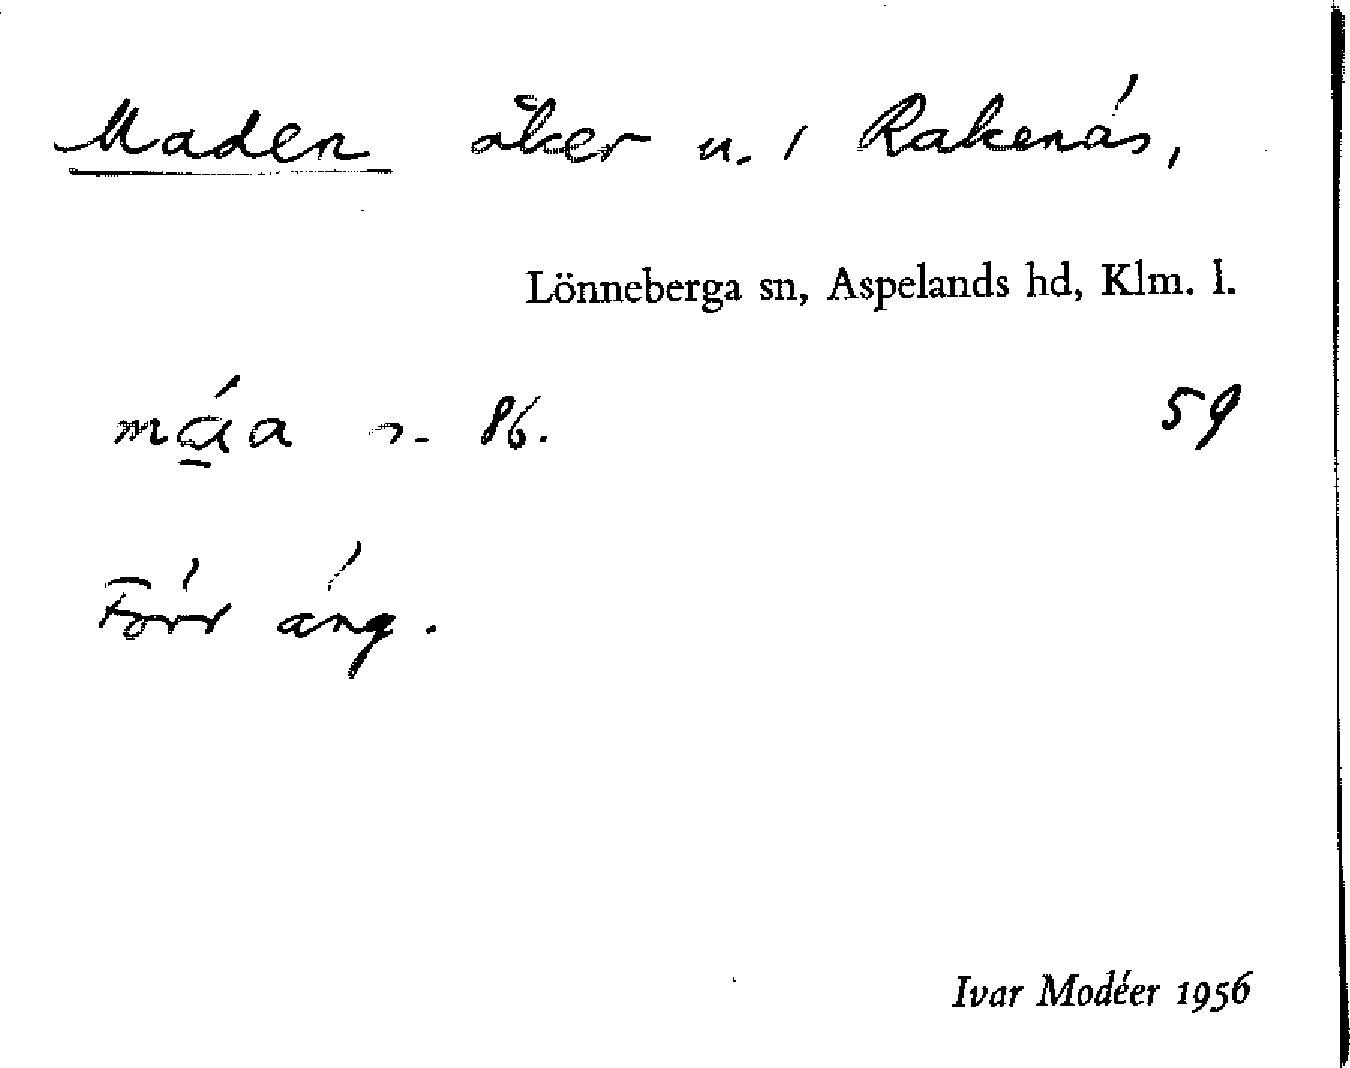 Maden åker u. 1 Rakenäs,
Lönneberga sn, Aspelands hd, Klm. l.
má̱a s. 86. 59
Förr äng.
Ivar Modéer 1956